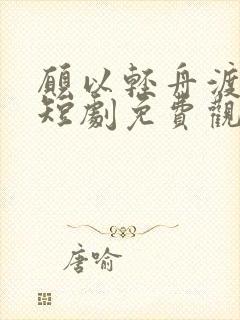 願以輕舟渡
短劇免費觀
唐喻